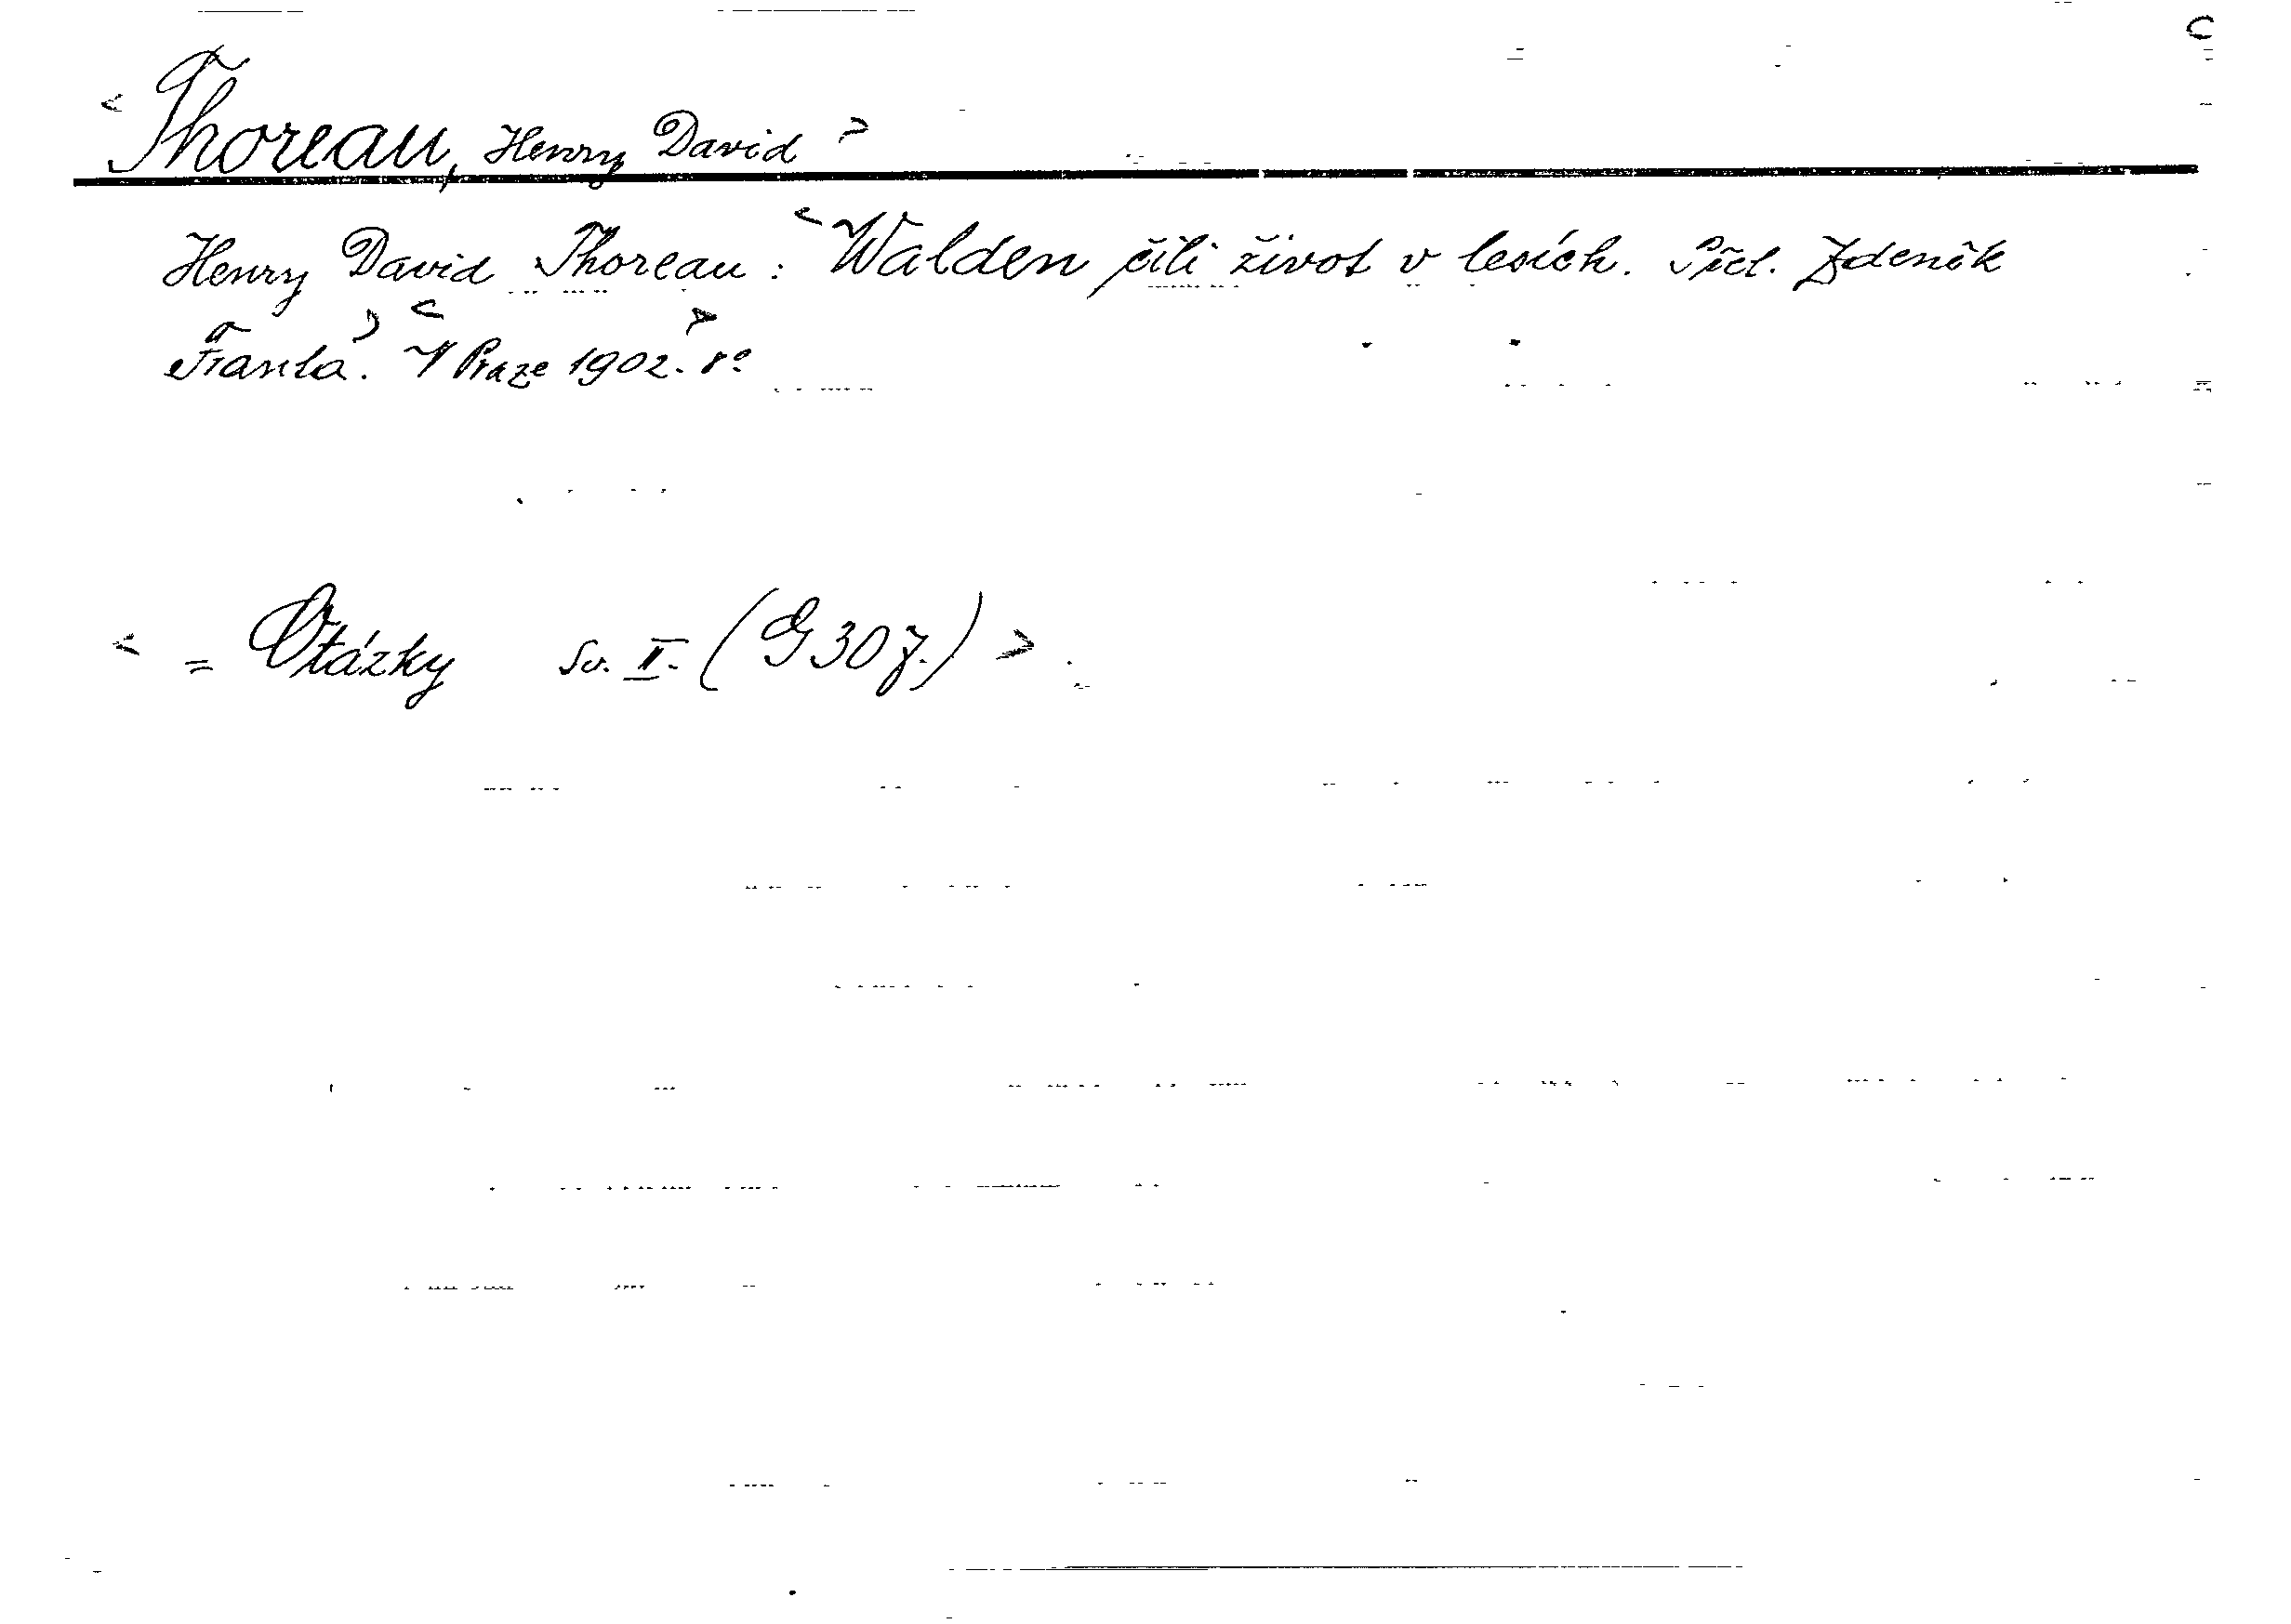 < Thoreau, Henry David >
Henry David Thoreau: < Walden čili život v lesích. Přel. Zdeněk
Franta. > < V Praze 1902. > 8°
< = Otázky sv. II. (G 307.) >